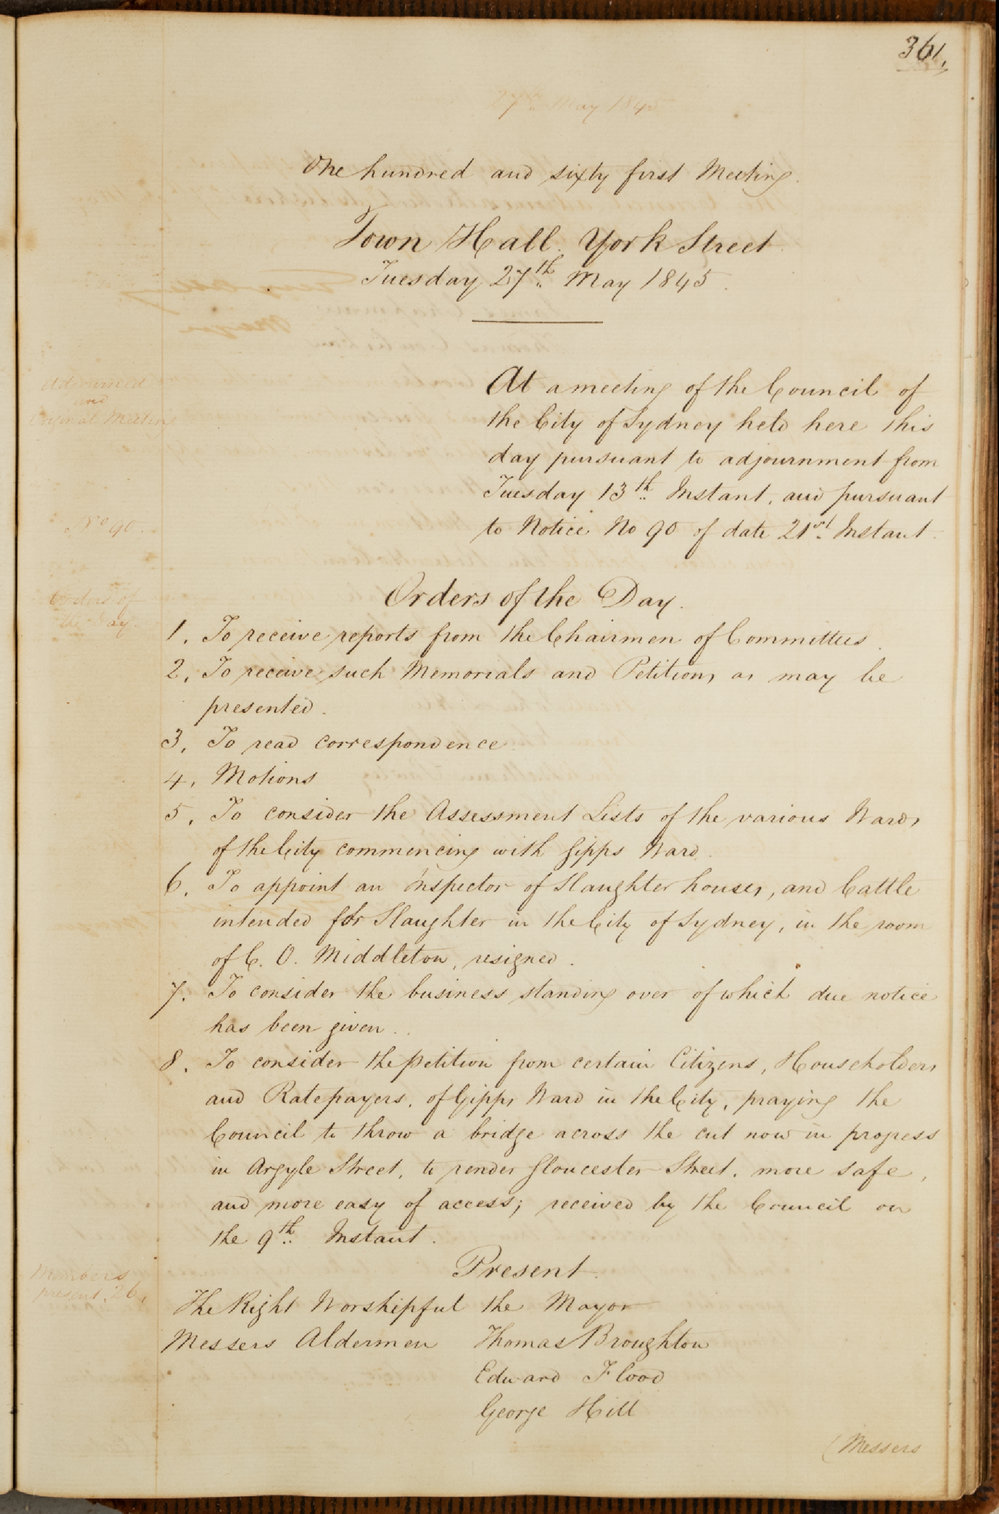 361.
27th May 1845
One hundred and sixty first Meeting.
Town Hall. York Street
Tuesday 27th May 1845.
Adjourned
and
Special Meeting
At a meeting of the Council of
the City of Sydney held here this
day pursuant to adjournment from
Tuesday 13th Instant, and pursuant
No 90.
to Notice No 90 of date 21st Instant.
Orders of the Day.
Orders of
the Day
1. To receive reports from the Chairmen of Committees.
2. To receive such Memorials and Petitions as may be
presented.
3. To read correspondence
4. Motions
5. To consider the Assessment Lists of the various Wards
of the City commencing with Gipps Ward.
6. To appoint an Inspector of Slaughter houses, and Cattle
intended for Slaughter in the City of Sydney, in the room
of C. O. Middleton, resigned.
7. To consider the business standing over of which due notice
has been given.
8. To consider the petition from certain Citizens, Householders
and Ratepayers, of Gipps Ward in the City, praying the
Council to throw a bridge across the cut now in progress
in Argyle Street, to render Gloucester Street, more safe,
and more easy of access; received by the Council on
the 9th Instant.
Present.
Members
present. 26.
The Right Worshipful the Mayor
Messers Aldermen Thomas Broughton
Edward Flood
George Hill
(Messers